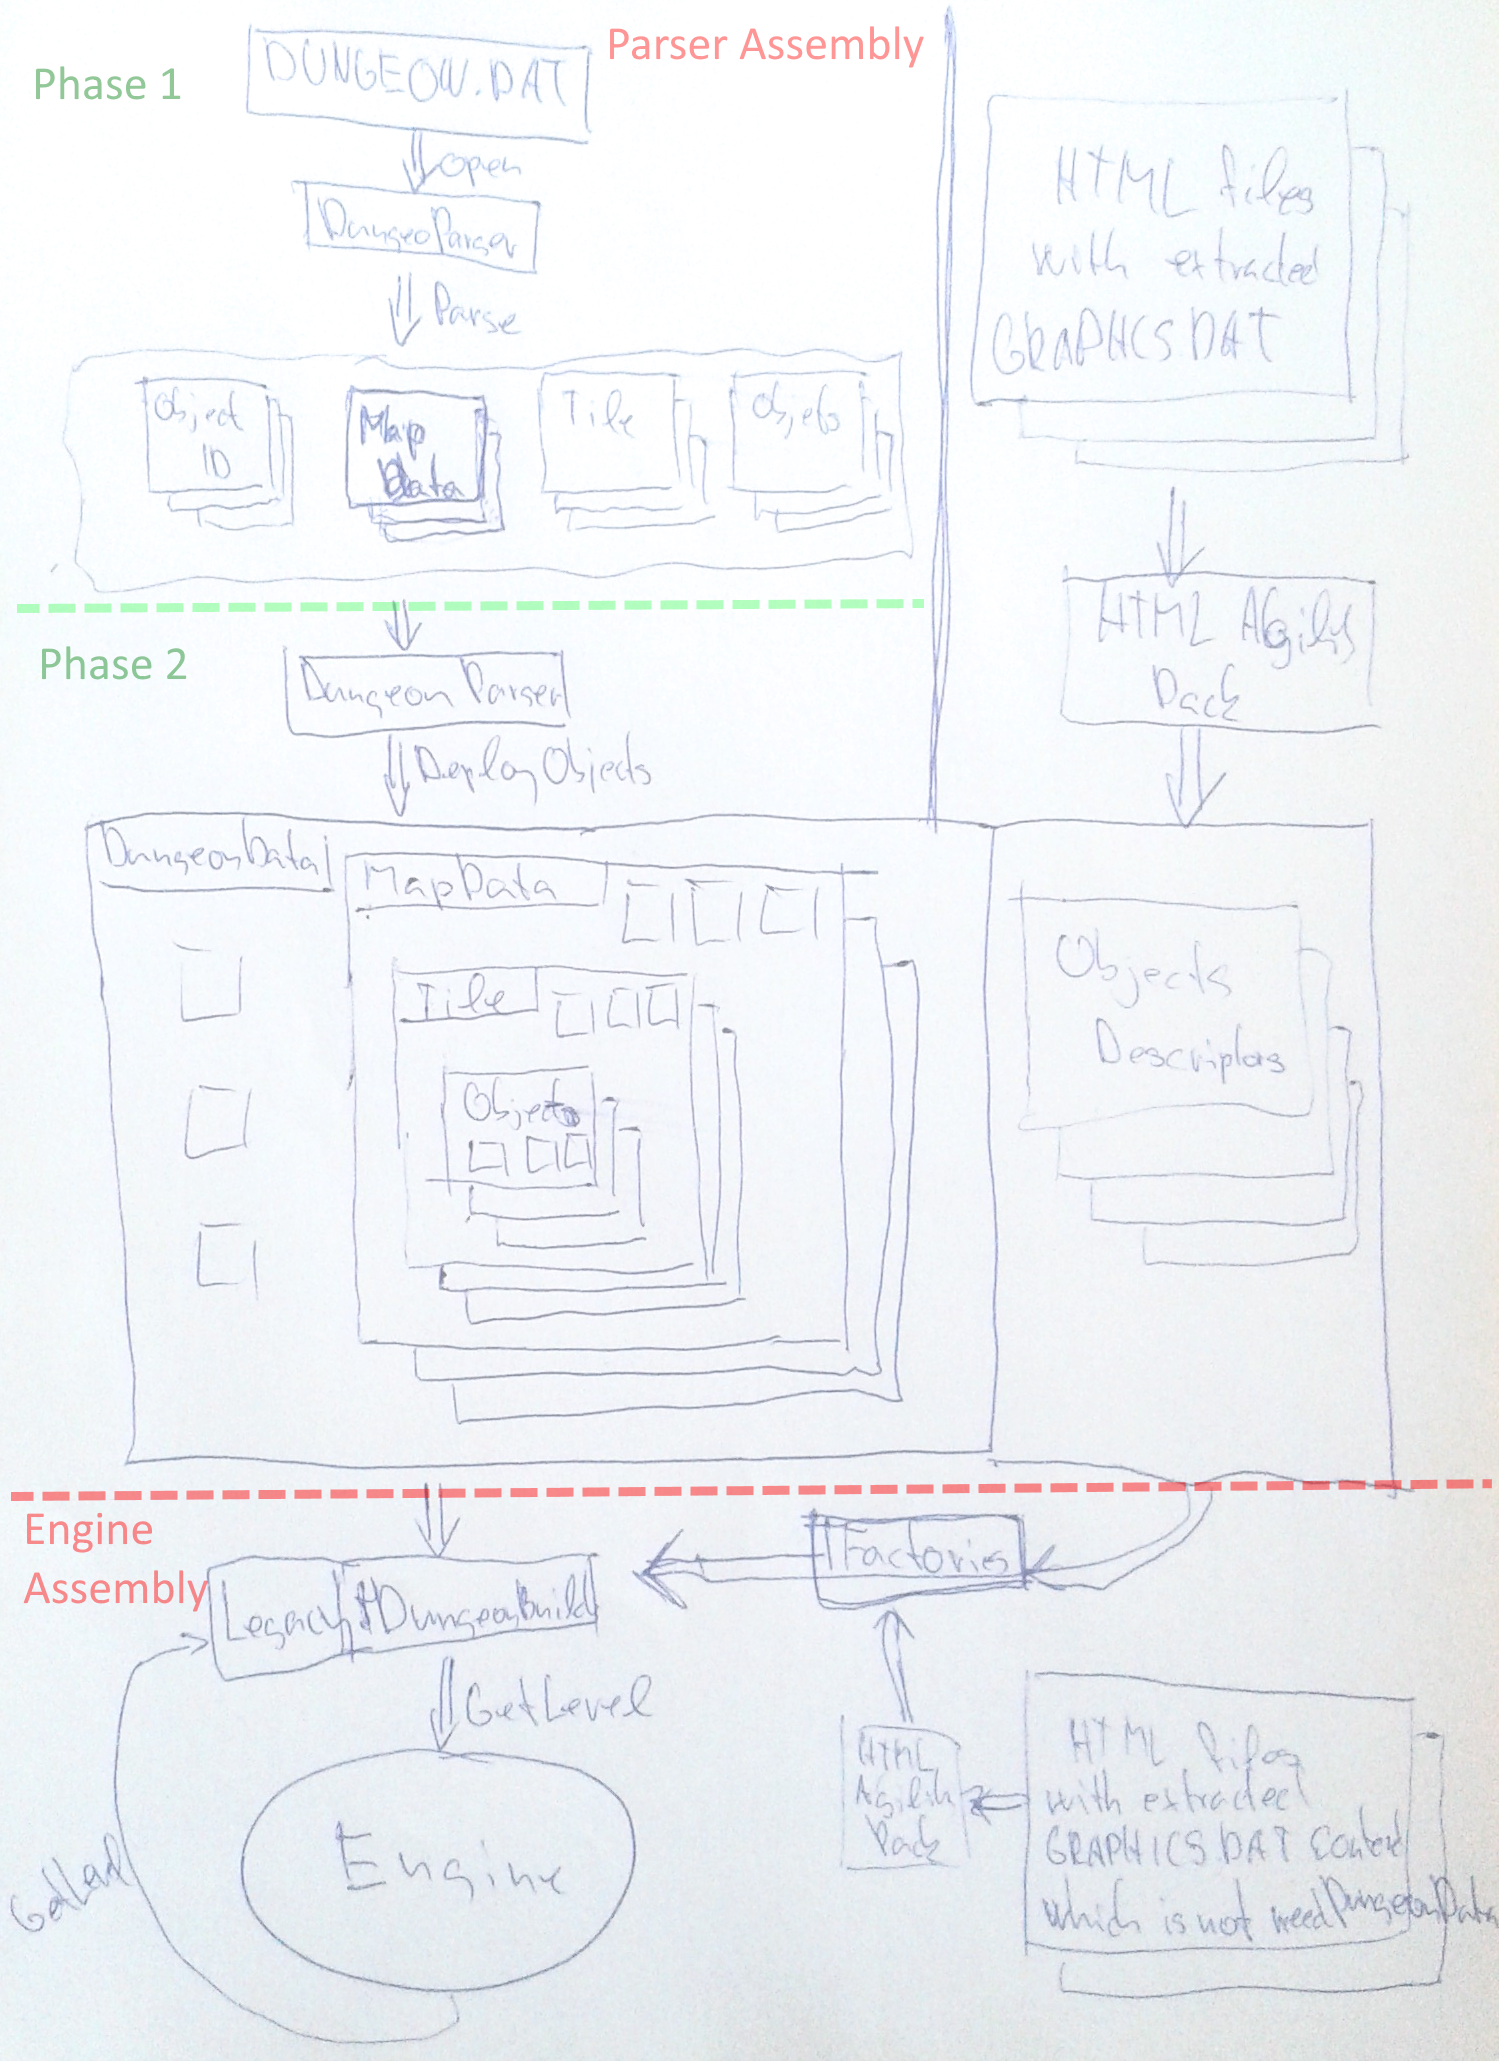 Parser Assembly
Phase 1
DUNGEON.DAT
open
DungeoParser
Parse
Object
ID
Map
Data
Tile
Objets
HTML files
with extracted
GRAPHICS DAT
HTML Agility
Pack
Phase 2
Dungeon Parser
Deploy Objects
DungeonData
MapData
Tile
Objects
Objects
Descriptors
Engine
Assembly
IFactories
Legacy DungeonBuild
GetLevel
Engine
GetLevel
HTML
Agility
Pack
HTML files
with extracted
GRAPHICS.DAT Content
which is not need DungeonData